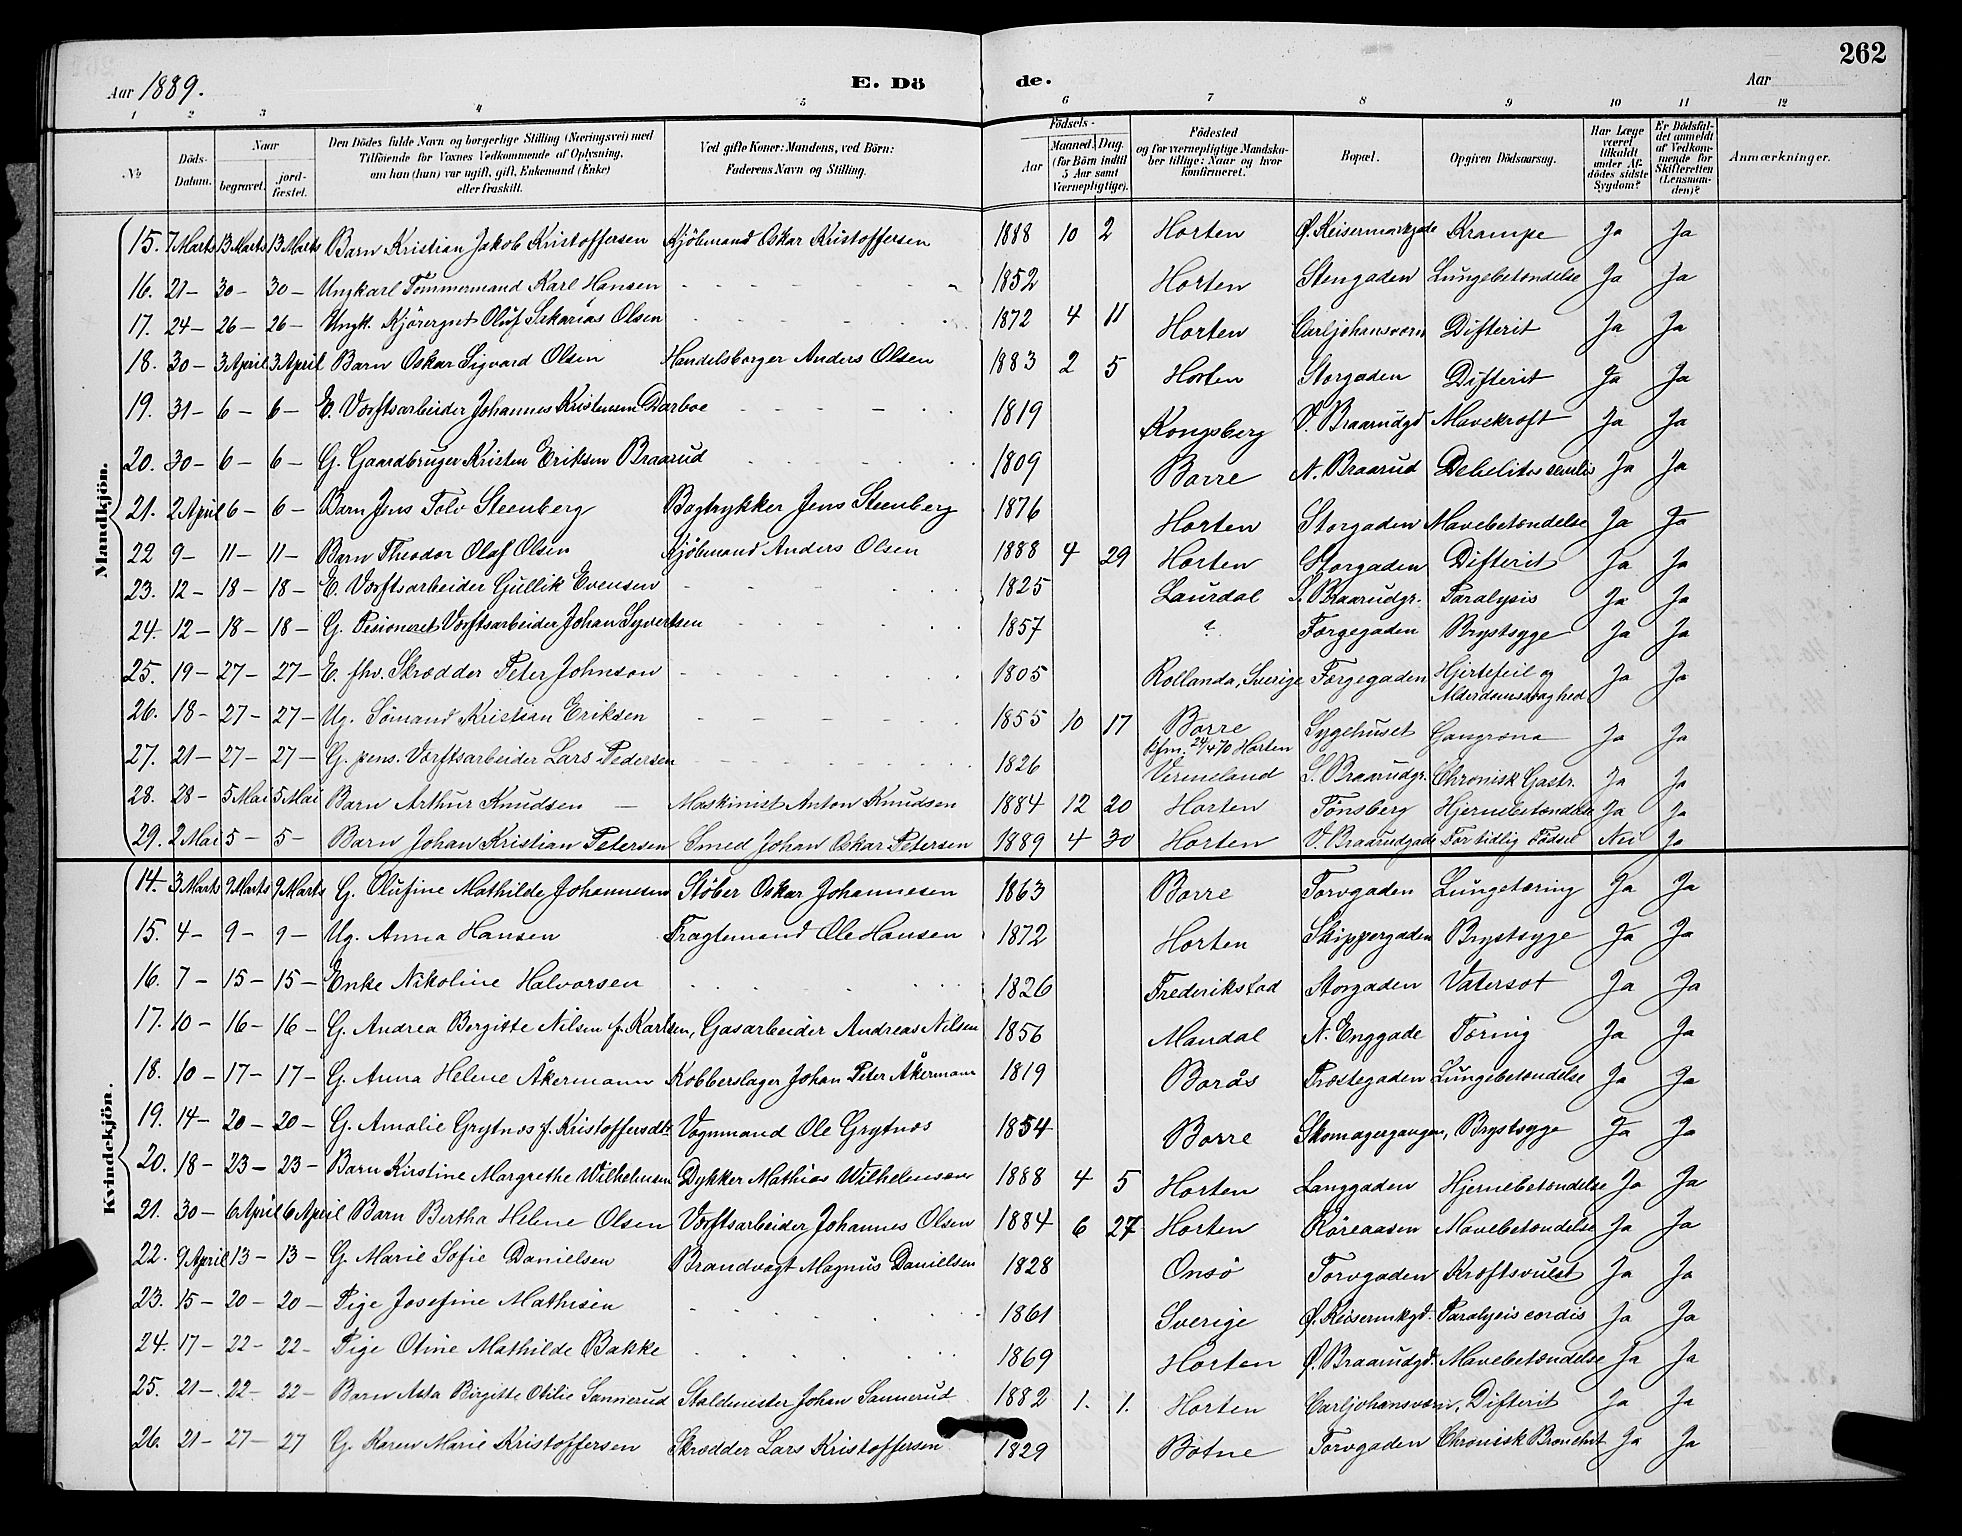 262
Aar 1889. E. Dö de. Aar
1 2 3 4 5 6 7 8 9 10 11 12
№ Döds-Datum. Naar begravet. jordfæstet. Den Dödes fulde Navn og borgerlige Stilling (Næringsvei) med Tilföiende for Voxnes Vedkommende af Oplysning, om han (hun) var ugift, gift, Enkemand (Enke) eller fraskilt. Ved gifte Koner: Mandens, ved Börn: Faderens Navn og Stilling. Födsels- Aar Maaned. Dag. (for Börn indtil 5 Aar samt Værnepligtige). Födested og for værnepligtige Mandskaber tillige: Naar og hvor konfirmeret. Bopæl. Opgiven Dödsaarsag. Har Læge været tilkaldt under Afdödes sidste Sygdom? Er Dödsfaldet anmeldt af Vedkommende for Skifteretten (Lensmanden)? Anmærkninger.
Mandkjön.
15. 7 Marts 13 Marts 13 Marts Barn Kristian Jakob Kristoffersen Kjöbmand Oskar Kristoffersen 1888 10 2 Horten Ø. Keisermarkgade Krampe Ja Ja
16. 21 – 30 – 30 – Ungkarl Tömmermand Karl Hansen 1852 Horten Stengaden Lungebetændelse Ja Ja
17. 24 – 26 – 26 – Ungk. Kjöregut Oluf Sakarias Olsen 1872 4 11 Horten Carljohansværn Difterit Ja Ja
18. 30 – 3 April 3 April Barn Oskar Sigvard Olsen Handelsborger Anders Olsen 1883 2 5 Horten Storgaden Difterit Ja Ja
19. 31 – 6 – 6 – E. Værftsarbeider Johannes Kristensen Darboe 1819 Kongsberg V. Braarudgd Mavekræft Ja Ja
20. 30 – 6 – 6 – G. Gaardbruger Kristen Eriksen Braarud 1809 Borre N. Braarud Debilitas senilis Ja Ja
21. 2 April 6 – 6 – Barn Jens Tolv Steenberg Bogtrykker Jens Steenberg 1876 Horten Storgaden Mavebetændelse Ja Ja
22 9 – 11 – 11 – Barn Theodor Olaf Olsen Kjöbmand Anders Olsen 1888 4 29 Horten Storgaden Difterit Ja Ja
23. 12 – 18 – 18 – E. Værftsarbeider Gullik Evensen 1825 Laurdal S. Braarudgr. Paralysis Ja Ja
24. 12 – 18 – 18 – G. Pesioneret Værftsarbeider Johan Syvertsen 1857 ? Færgegaden Brystsyge Ja Ja
25. 19 – 27 – 27 – E. fhv. Skrædder Peter Johnson 1805 Rollanda, Sverige Færgegaden Hjertefeil og Alderdomssvaghed Ja Ja
26. 18 – 27 – 27 – Ug. Sömand Kristian Eriksen 1855 10 17 Borre kfm. 24/4 70 Horten Sygehuset Gangræna Ja Ja
27. 21 – 27 – 27 – G. pens. Værftsarbeider Lars Pedersen 1826 Vermeland S. Braarudgr. Chronisk Gastr. Ja Ja
28. 28 – 5 Mai 5 Mai Barn Arthur Knudsen – Maskinist Anton Knudsen 1884 12 20 Horten Tönsberg Hjernebetændelse Ja Ja
29. 2 Mai 5 – 5 – Barn Johan Kristian Petersen Smed Johan Oskar Petersen 1889 4 30 Horten V. Braarudgade For tidlig Födsel Nei Ja
Kvindekjön.
14. 3 Marts 9 Marts 9 Marts G. Olufine Mathilde Johannesen Stöber Oskar Johannesen 1863 Borre Torvgaden Lungetæring Ja Ja
15. 4 – 9 – 9 – Ug. Anna Hansen Fragtemand Ole Hansen 1872 Horten Skippergaden Brystsyge Ja Ja
16. 7 – 15 – 15 – Enke Nikoline Halvorsen 1826 Frederikstad Storgaden Vatersot Ja Ja
17. 10 – 16 – 16 – G. Andrea Bergitte Nilsen f. Karlsen, Gasarbeider Andreas Nilsen 1856 Mandal N. Enggade Tæring Ja Ja
18. 10 – 17 – 17 – G. Anna Helene Åkermann Kobberslager Johan Peter Åkermann 1819 Borås Præstegaden Lungebetændelse Ja Ja
19. 14 – 20 – 20 – G. Amalie Grytnæs f. Kristoffersdtr Vognmand Ole Grytnæs 1854 Borre Skomagergangen, Brystsyge Ja Ja
20. 18 – 23 – 23 – Barn Kirstine Margrethe Wilhelmsen Dykker Mathias Wilhelmsen 1888 4 5 Horten Langgaden Hjernebetændelse Ja Ja
21. 30 – 6 April 6 April Barn Bertha Helene Olsen Værftsarbeider Johannes Olsen 1884 6 27 Horten Röreaasen Mavebetændelse Ja Ja
22. 9 April 13 – 13 – G. Marie Sofie Danielsen Brandvagt Magnus Danielsen 1828 Onsö Torvgaden Kræftsvulst Ja Ja
23. 15 – 20 – 20 – Pige Josefine Mathisen 1861 Sverige Ø. Keisermkgd. Paralysis cordis Ja Ja
24. 17 – 22 – 22 – Pige Otine Mathilde Bakke 1869 Horten Ø. Braarudgd. Mavebetændelse Ja Ja
25. 21 – 22 – 22 – Barn Asta Birgitte Otilie Sannerud Staldmester Johan Sannerud 1882 1. 1. Horten Carljohansværn, Difterit Ja Ja
26. 21 – 27 – 27 G. Karen Marie Kristoffersen Skrædder Lars Kristoffersen 1829 Botne Torvgaden Chronisk Bronchit Ja Ja